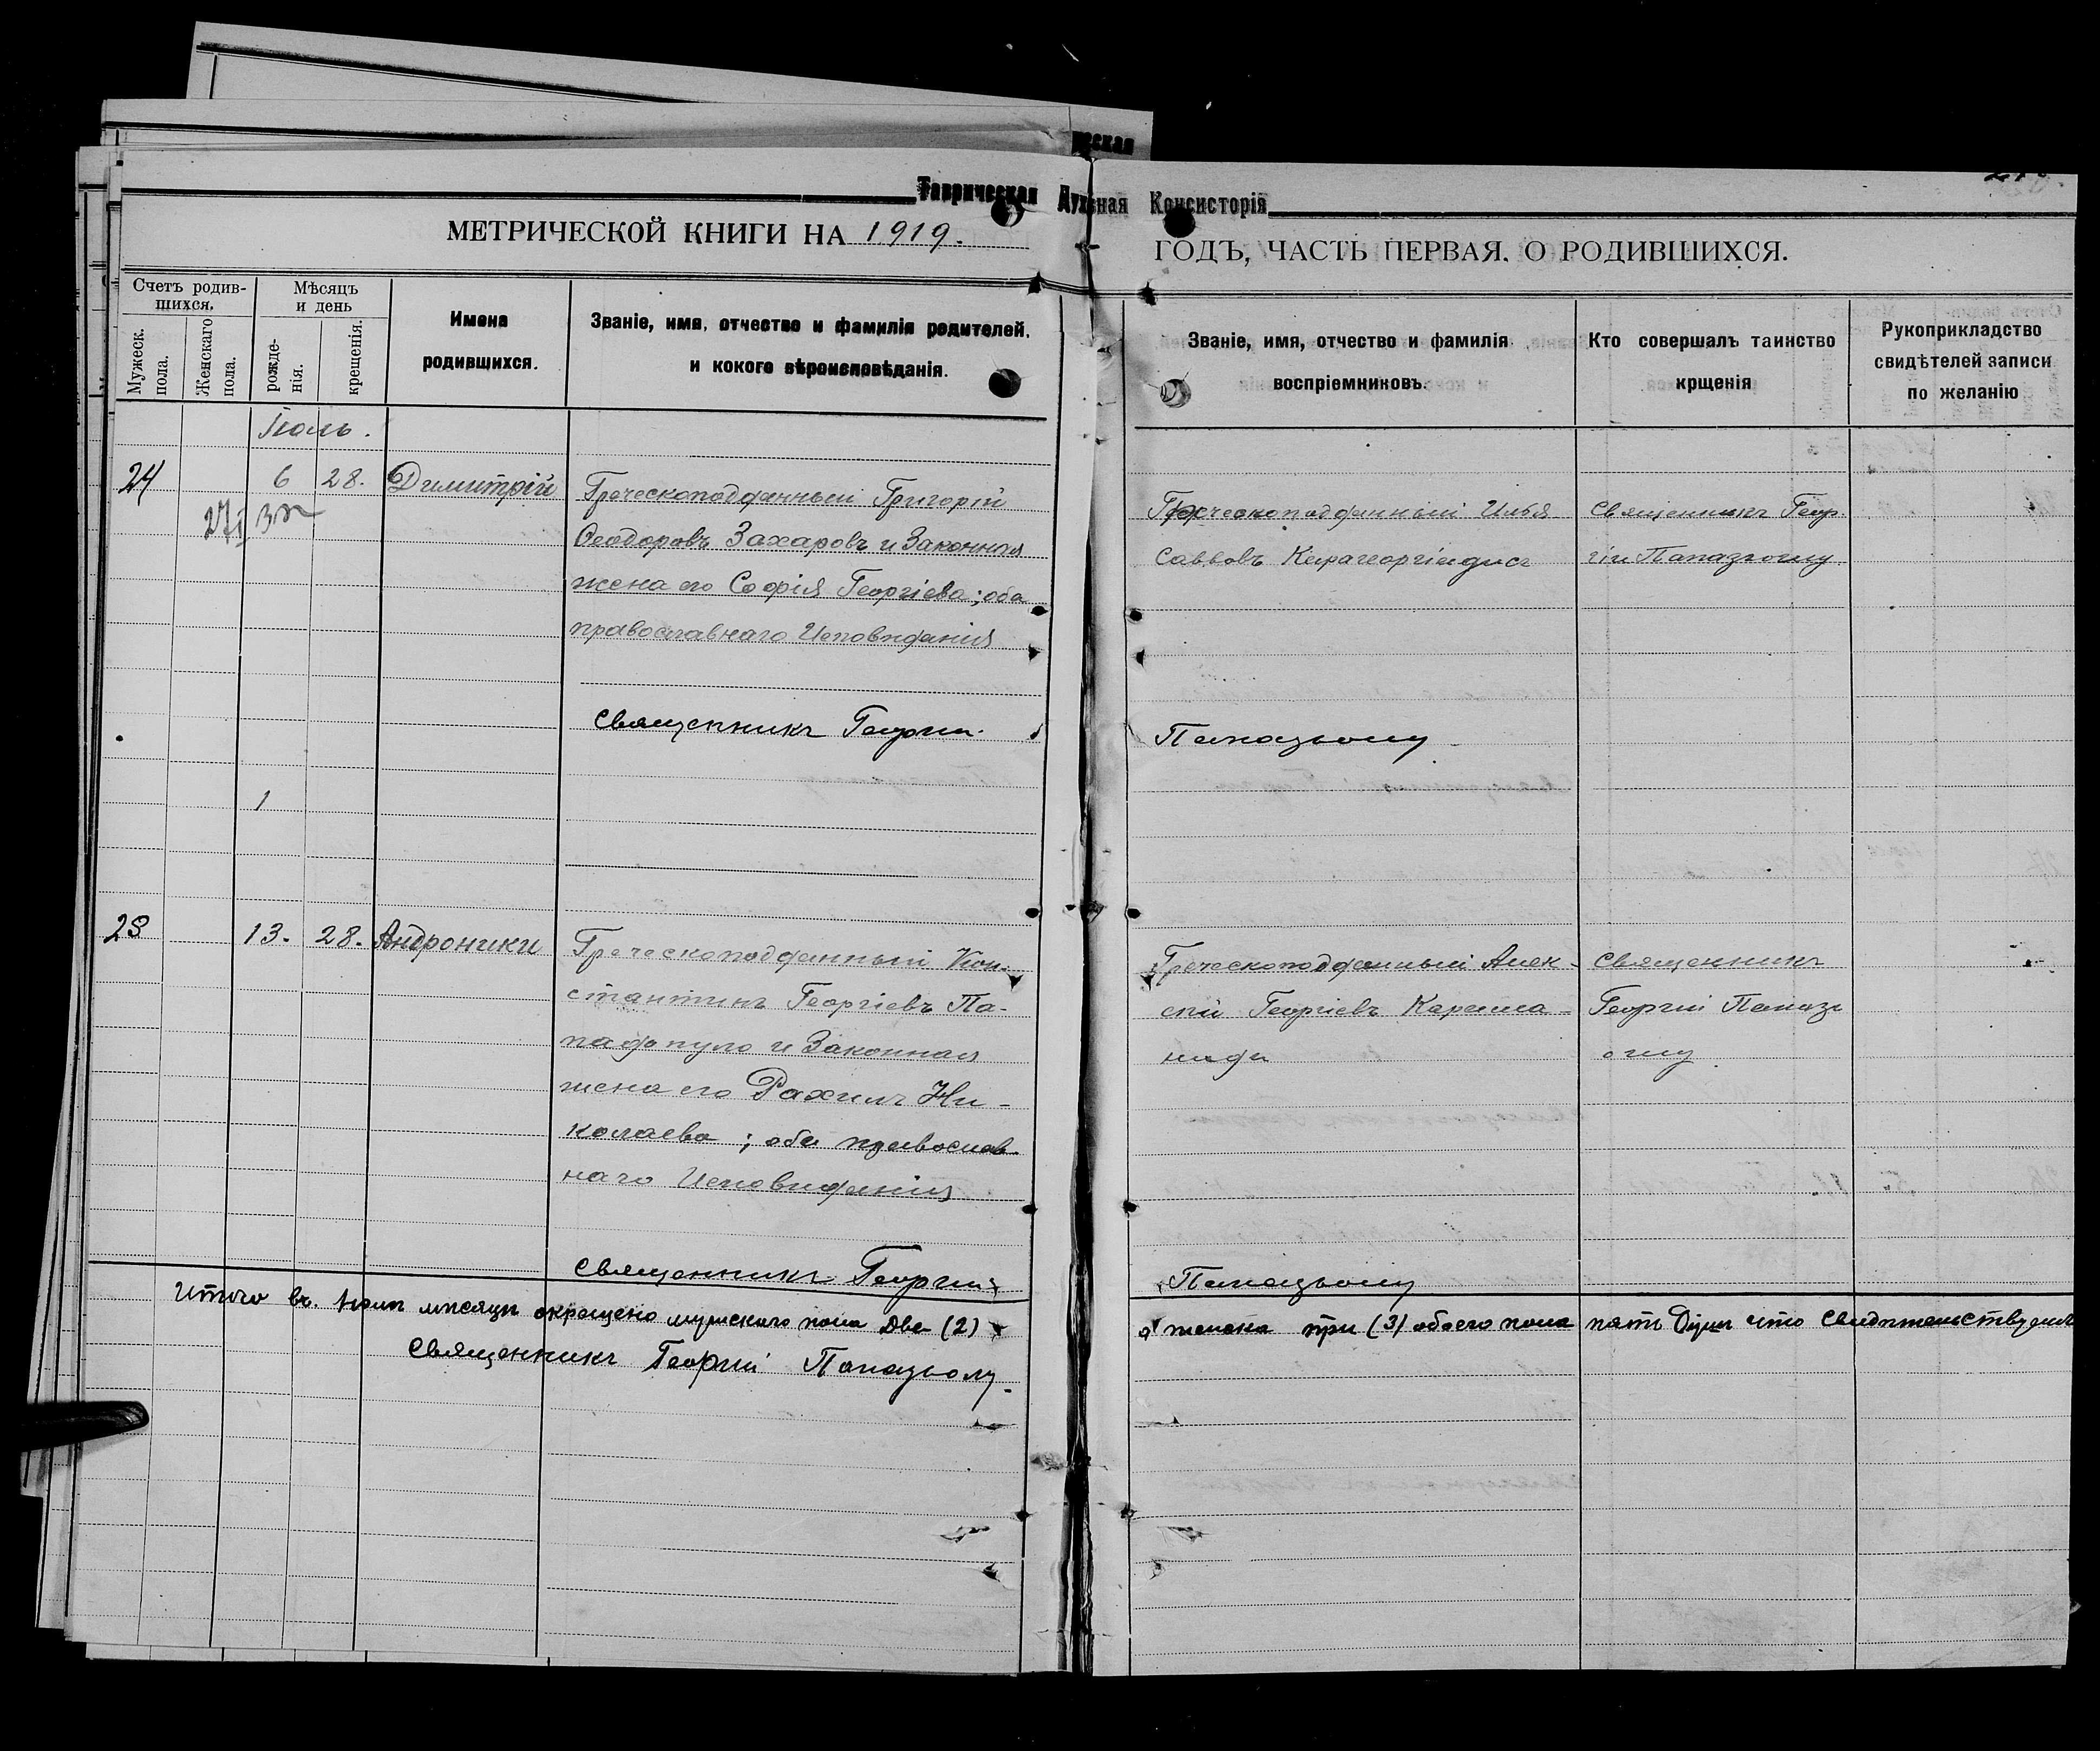 Таврическая Духовная Консисторія
МЕТРИЧЕСКОЙ КНИГИ НА 1919.
ГОДЪ, ЧАСТЬ ПЕРВАЯ. О РОДИВШИХСЯ.
Счетъ родив-
шихся.
Мужеск. пола.
Женскаго пола.
Мѣсяцъ
и день
рожде-
нія.
крещенія.
Имена
родившихся.
Званіе, имя, отчество и фамилія родителей,
и кокого вѣроисповѣданія.
Званіе, имя, отчество и фамилія
воспріемниковъ.
Кто совершалъ таинство
крщенія
Рукоприкладство
свидѣтелей записи
по желанію
Іюль.
24
6
28.
Димитрій
Греческоподданный Григорій
Ѳеодоровъ Захаровъ и Законная
жена его Софія Георгіева; оба
православнаго Исповиданія
Греческоподданный Илья
Саввовъ Карагеоргіадись
Священникъ Геор.
гій Папазьоглу
Священникъ Георгій
Папазьоглу
1
25
13.
28.
Андроники
Греческоподданный Кон-
стантинъ Георгіевъ Па-
падопуло и Законная
жена его Рахиль Ни-
колаева; оба православ-
наго Исповиданія
Греческоподданный Алек-
сѣй Георгіевъ
Священникъ
Георгій Папазь
оглу
Священникъ Георгій
Папазьоглу
Итого въ Іюли мисяци окрещено мужскаго пола Два (2)
а женска три (3) обоего пола пять Душ что Свидительствуемъ
Священникъ Георгій Папазьоглу.